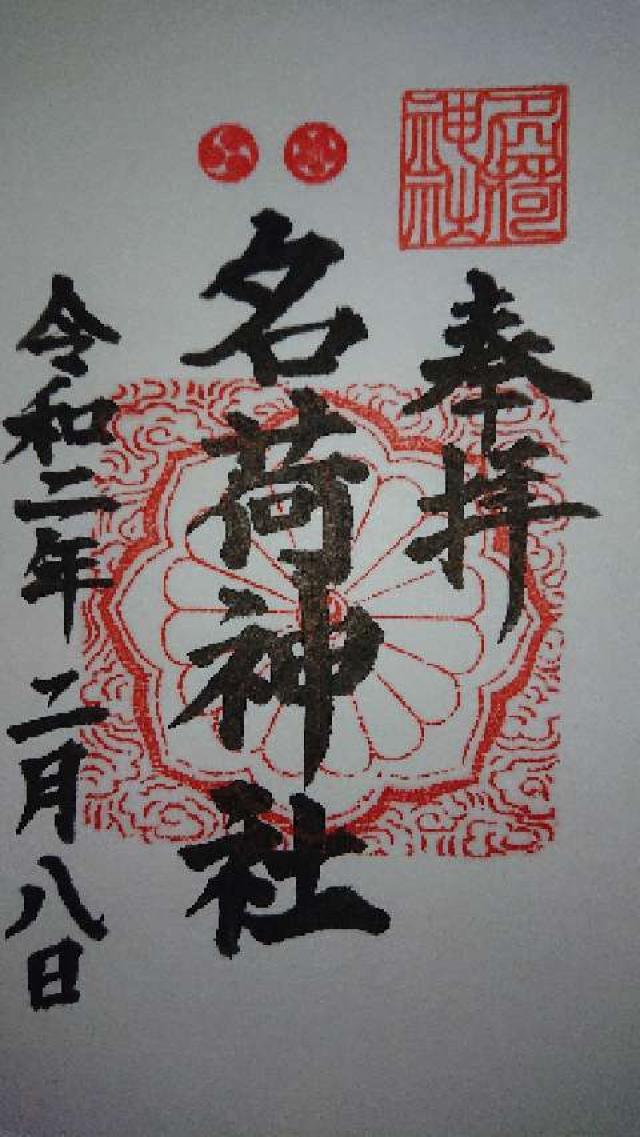 奉拝
名荷神社
令和二年二月八日
名荷神社